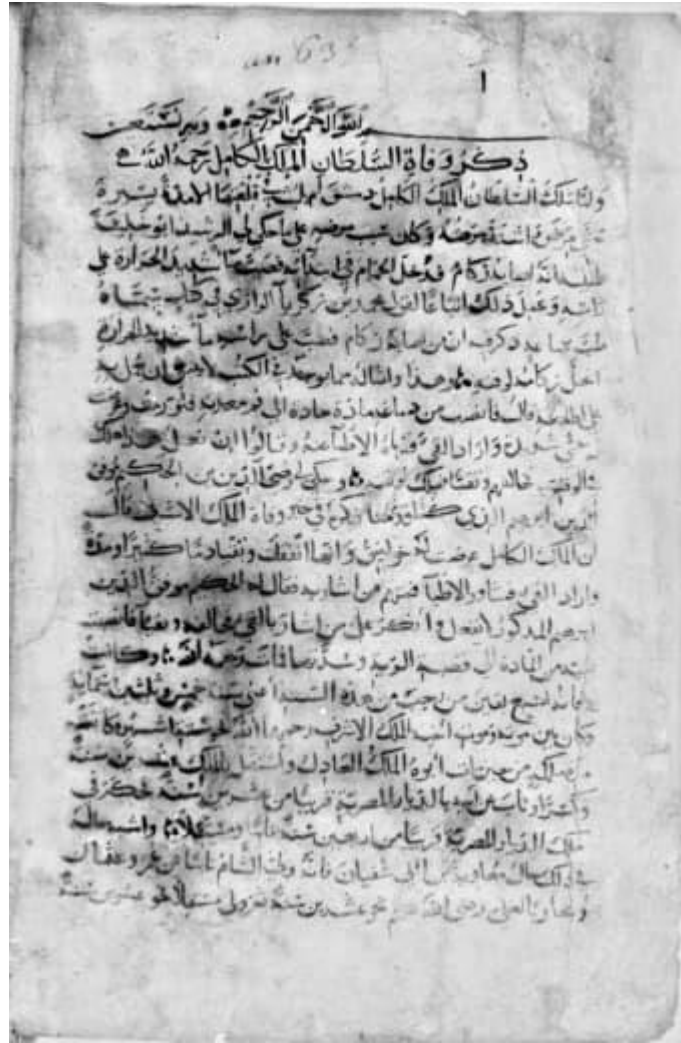 635
١
بسم الله الرحمن الرحيم وبه نستعين
ذكر وفاة السلطان الملك الكامل رحمه الله
ولما ملك السلطان الملك الكامل دمشق لم يلبث الا مدة يسيرة
حتى مرض واشتد مرضه وكان سبب مرضه على ما حكى لي الرشيد ابو خليفة
انه اصابه زكام فدخل الحمام في ابتدائه فصب ماء شديد الحرارة على
راسه وعمل ذلك اتباعا لقول محمد بن زكريا الرازي في كتاب سماه
طب ساعة ذكر فيه ان من اصابه زكام فصب على راسه ماء شديد الحرارة
انحل زكامه لوقته وهذا وامثاله مما يوجد في الكتب لا ينبغي ان يعمل به
على قال فانصب من دماغه مادة حادة الى فم معدته فتورمت
واراد القيء فنهاه الاطباء وقالوا ان
الوقت خالفهم وتقيا هلك لوقته وحكى لي رضي الدين بن الحكيم موفق
الدين ابرهيم الذي ذكره في خبر وفاة الملك الاشرف قال
ان الملك الكامل عرضت له خوانيق وانها انفقات وتقيا دما كثيرا ومدة
واراد القيء فشاور الاطباء فمنهم من اشار به فقال له الحكيم موفق الدين
ابرهيم المذكور لا تفعل وانكر على من اشار بالقيء فخالفه وتقيا فانصبت
من المادة الى قصبة الرية وسدتها فمات رحمه الله وكانت
وفاته لتسع بقين من رجب من هذه السنة اعني سنة خمس وثلثين وستماية
فكان بين موته وموت اخيه الملك الاشرف رحمهما الله نحو ستة اشهر وكانت
من حين مات ابوه الملك العادل واستقل بالملك عشرين سنة
وناب عن ابيه بالديار المصرية قريبا من عشرين سنة فحكم في
ملك الديار المصرية قريبا من اربعين سنة نايبا ومستقلا واشبه حاله
في ذلك حال معاوية بن ابي سفيان فانه ولي الشام نايبا عن عمر وعثمان
رضي الله عنهم نحو عشرين سنة ثم ولي مستقلا نحو عشرين سنة